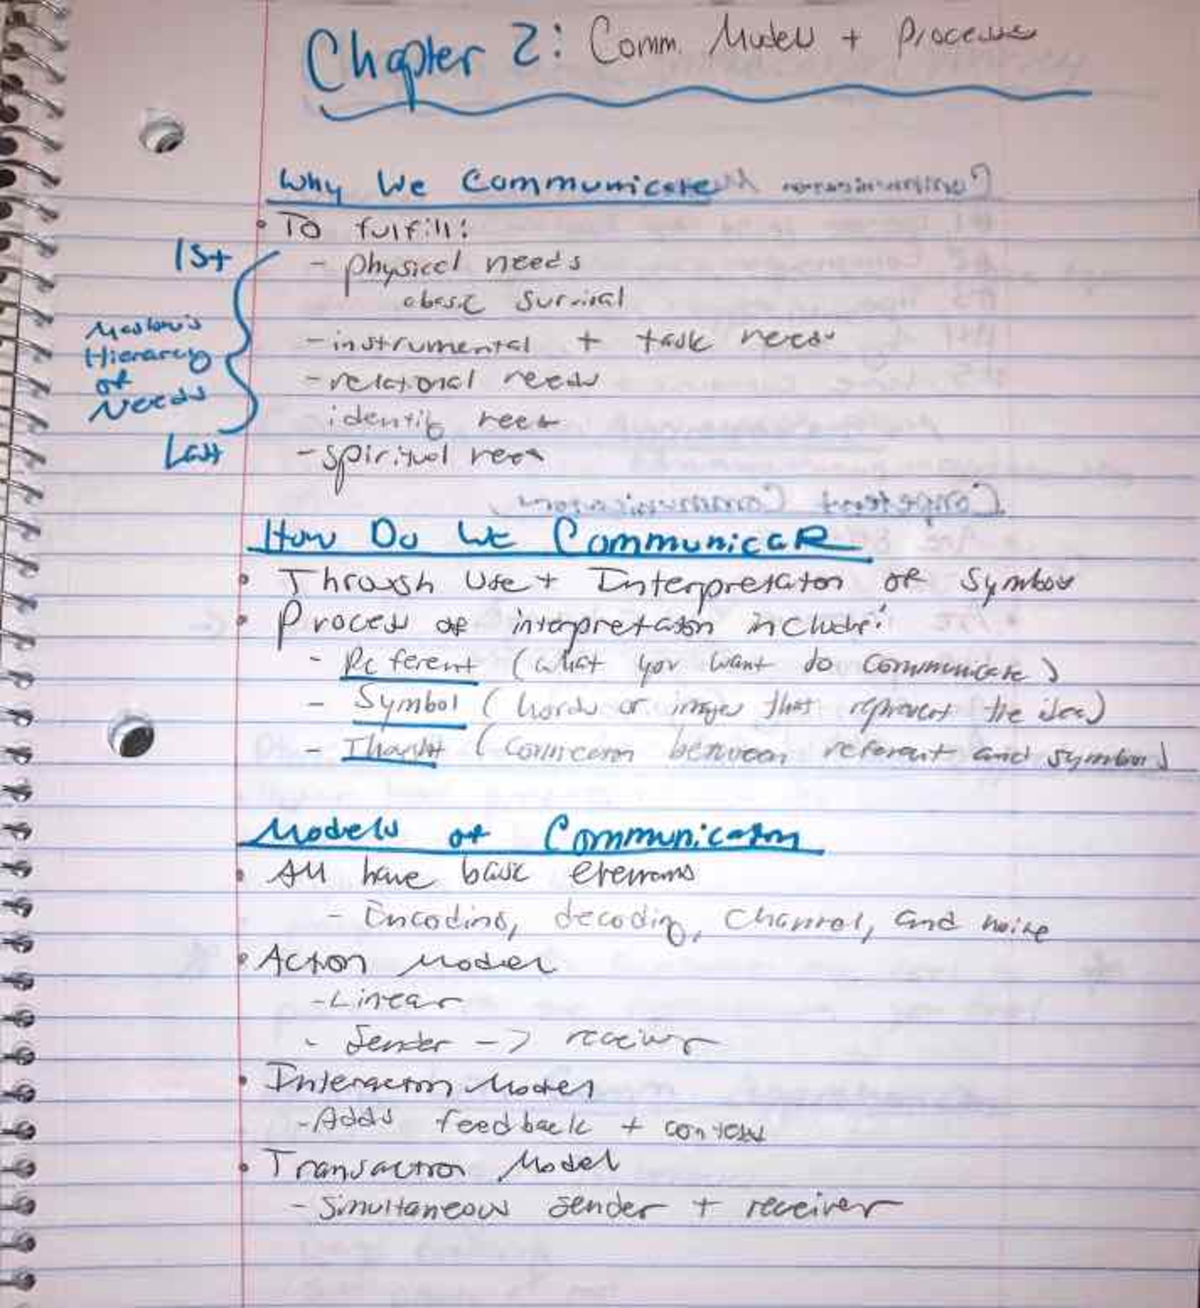 Chapter 2: Comm. Models + Processes
Why We Communicate
• To fulfill:
1st
- physical needs
◦ basic survival
- instrumental + task needs
Maslow's
Hierarcy
of
Needs
- relational needs
identity needs
Last
- spiritual needs
How Do We Communicate
• Through Use + Interpretation of Symbols
• Process of interpretation include:
- Referent (what you want to communicate)
- Symbol (words or images that represent the idea)
- Thought (Connection between referent and symbol)
Models of Communication
• All have basic elements
- Encoding, decoding, Channel, and noise
• Action Model
- Linear
- Sender -> receiver
• Interaction Model
- Adds feedback + context
• Transaction Model
- Simultaneous sender + receiver